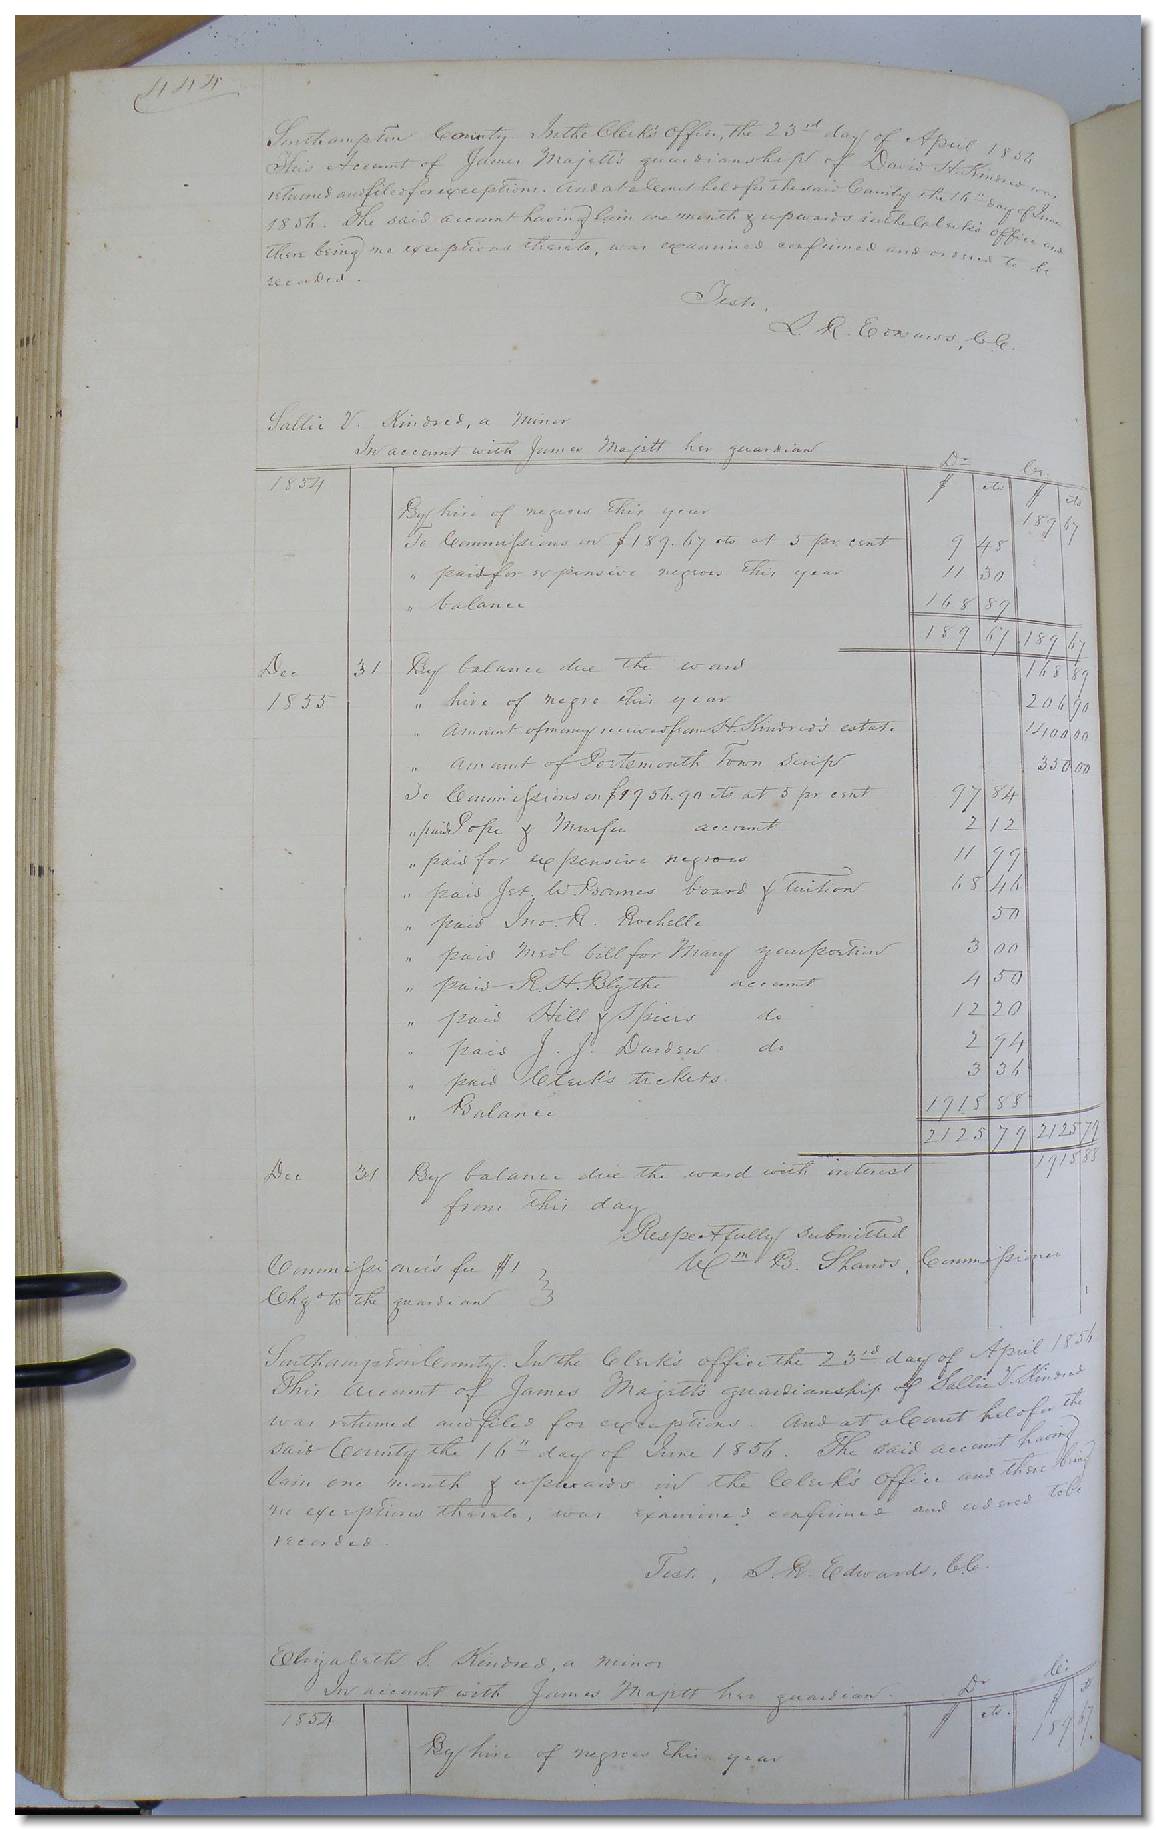 444
Southampton County. In the Clerk's Office, the 23rd day of April 1856
This Account of James Majett's guardianship of David H. Kindred was
returned and filed for exceptions. And at a Court held for the said County the 16th day of June
1856. The said account having lain one month & upwards in the Clerk's office and
there being no exceptions thereto, was examined confirmed and ordered to be
recorded.
Test.,
L. R. Edwards, C.C.
Sallie V. Kindred, a minor
In account with James Majett her guardian
Dr. Cr.
1854 $ cts $ cts
By hire of negroes this year 189 67
To Commissions on $189.67 cts at 5 pr cent 9 48
" paid for expensive negroes this year 11 30
" balance 168 89
189 67 189 67
Dec 31 By balance due the ward 168 89
1855 " hire of negro this year 206 90
" Amount of money received from H. Kindred's estate 1400 00
" Amount of Portsmouth Town Scrip 350 00
To Commissions on $1956.90 cts at 5 pr cent 97 84
" paid Pope & Murfee account 2 12
" paid for expensive negroes 11 99
" paid board & Tuition 68 46
" paid Jno. R. Rochelle 50
" paid Medl bill for Mary portion 3 00
" paid R. H. Blythe account 4 50
" paid Hill & Spiers do 12 20
" paid J. J. Darden do 2 94
" paid Clerk's tickets 3 36
" Balance 1918 88
2125 79 2125 79
Dec 31 By balance due the ward with interest 1918 88
from this day
Respectfully submitted
Commissioner's fee $1 Wm B. Shands, Commissioner
Chgd to the guardian
Southampton County. In the Clerk's office the 23rd day of April 1856
This account of James Majett's guardianship of Sallie V. Kindred
was returned and filed for exceptions. And at a Court held for the
said County the 16th day of June 1856. The said account having
lain one month & upwards in the Clerk's Office and there being
no exceptions thereto, was examined confirmed and ordered to be
recorded.
Test., L. R. Edwards, C.C.
Elizabeth S. Kindred, a minor
In account with James Majett her guardian. Dr Cr.
1854 $ cts. $ cts
By hire of negroes this year 189 67